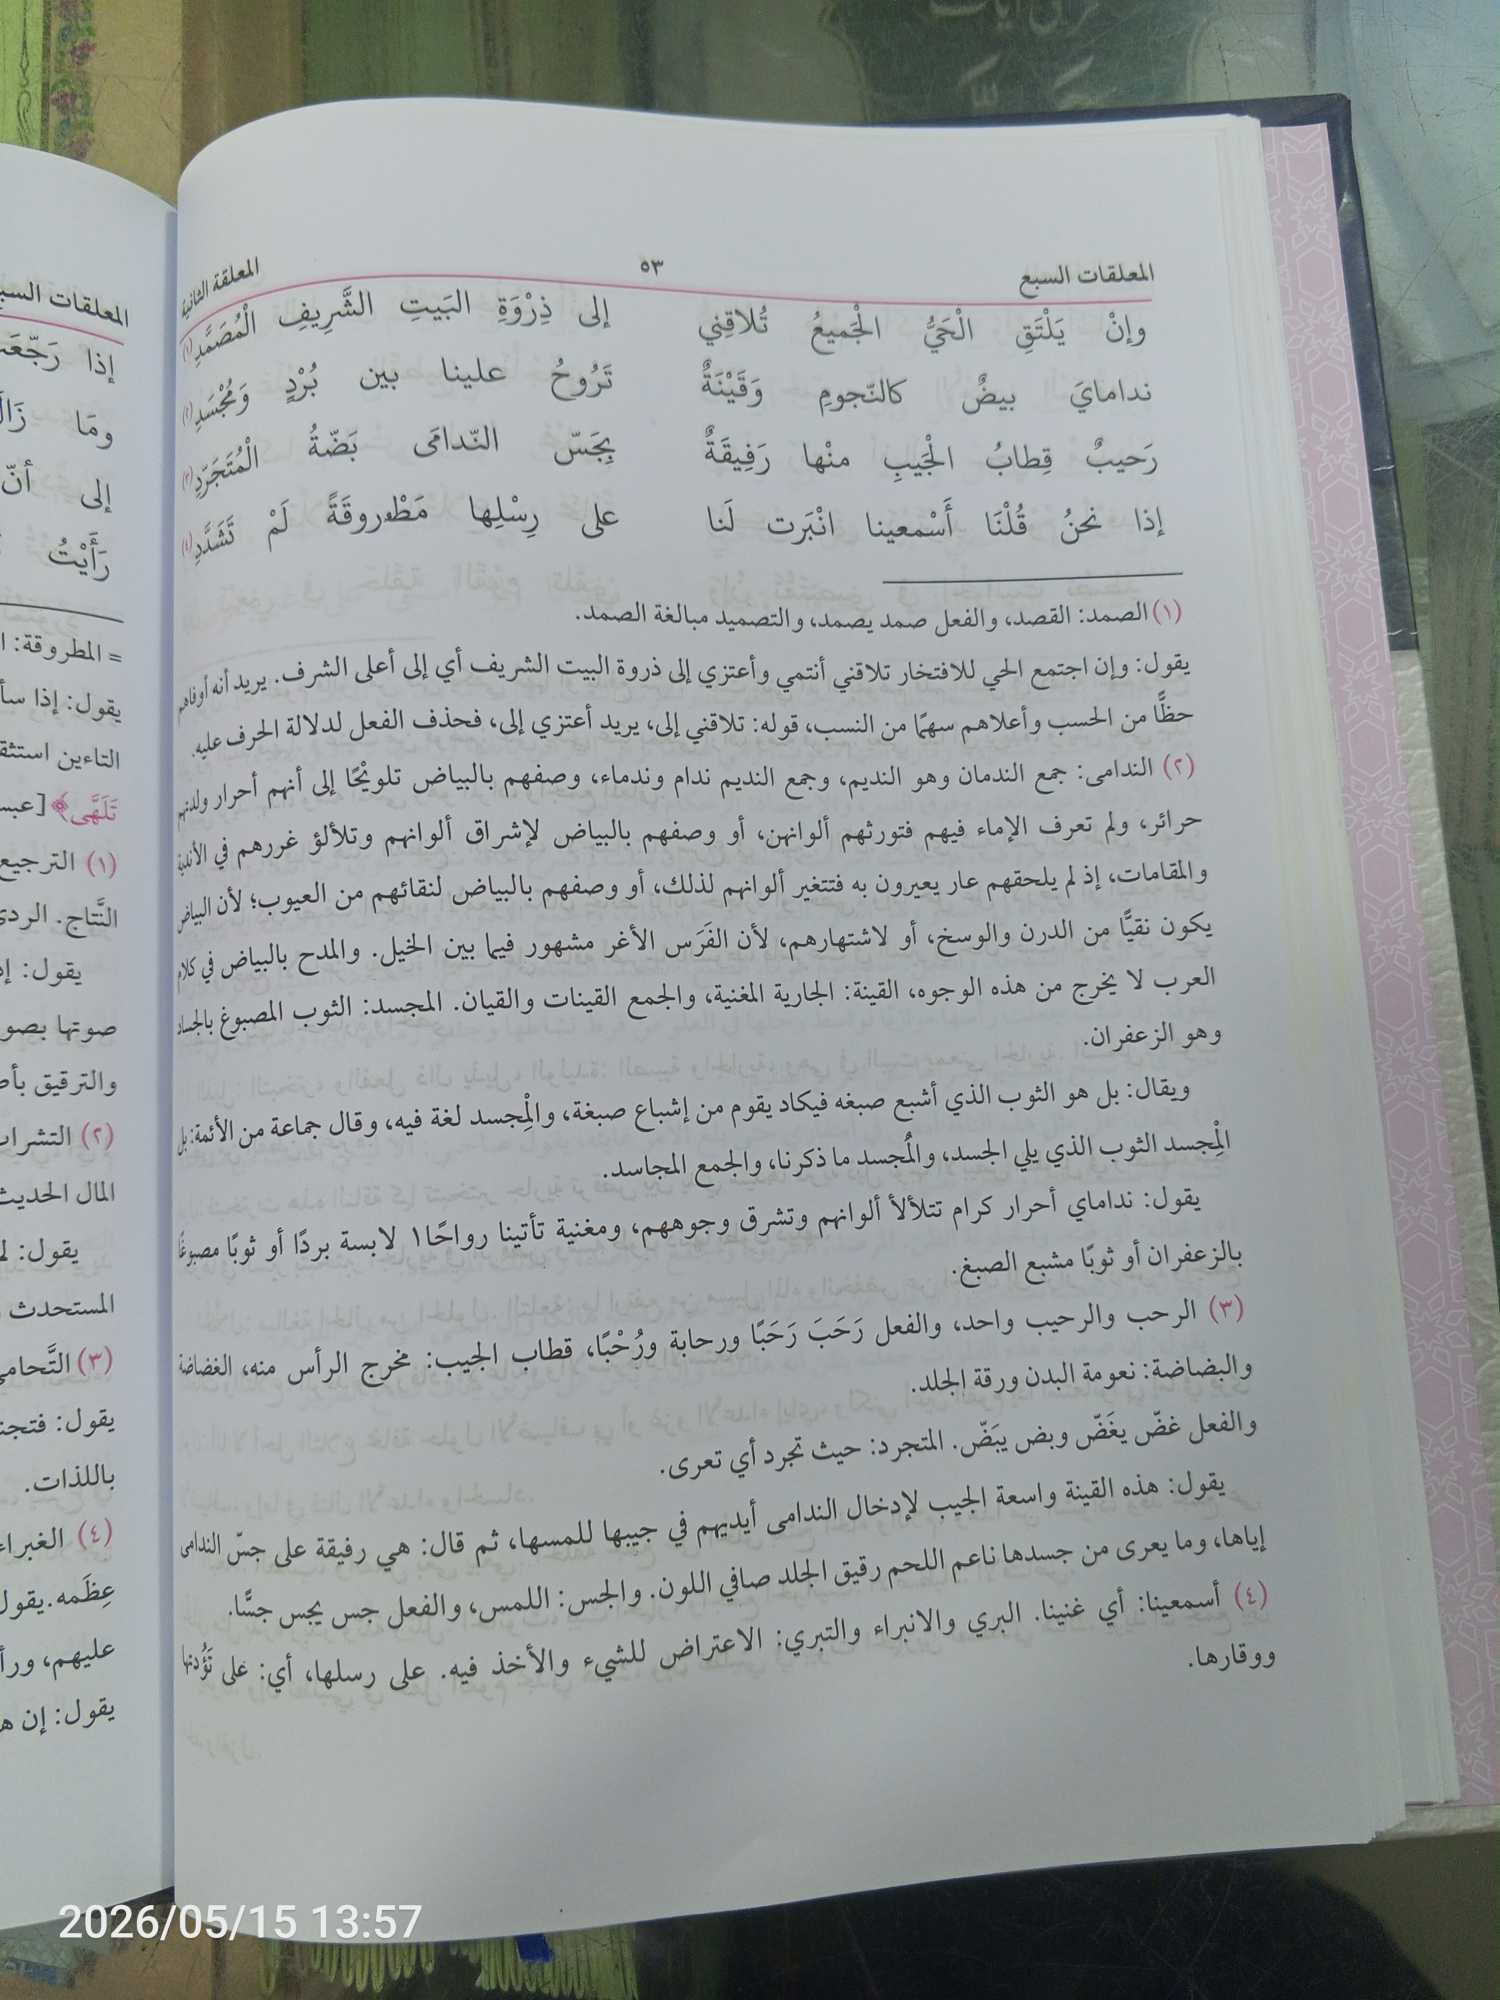 المعلقات السبع ٥٣ المعلقة الثانية
وإنْ يَلْتَقِ الْحَيُّ الْجَميعُ تُلاقِني إلى ذِرْوَةِ البَيتِ الشَّرِيفِ الْمُصَمَّدِ(١)
ندامايَ بيضٌ كالنّجومِ وَقَيْنَةٌ تَرُوحُ علينا بين بُرْدٍ وَمُجْسَدِ(٢)
رَحيبٌ قِطابُ الْجَيبِ منْها رَفِيقَةٌ بِجَسّ النّدامَى بَضّةُ الْمُتَجَرّدِ(٣)
إذا نحنُ قُلْنَا أَسْمعينا انْبَرت لَنا على رِسْلِها مَطْروقَةً لَمْ تَشَدَّدِ(٤)
(١) الصمد: القصد، والفعل صمد يصمد، والتصميد مبالغة الصمد.
يقول: وإن اجتمع الحي للافتخار تلاقني أنتمي وأعتزي إلى ذروة البيت الشريف أي إلى أعلى الشرف. يريد أنه أوفاهم
حظًّا من الحسب وأعلاهم سهمًا من النسب، قوله: تلاقني إلى، يريد أعتزي إلى، فحذف الفعل لدلالة الحرف عليه.
(٢) الندامى: جمع الندمان وهو النديم، وجمع النديم ندام وندماء، وصفهم بالبياض تلويْحًا إلى أنهم أحرار ولدتهم
حرائر، ولم تعرف الإماء فيهم فتورثهم ألوانهن، أو وصفهم بالبياض لإشراق ألوانهم وتلألؤ غررهم في الأندية
والمقامات، إذ لم يلحقهم عار يعيرون به فتتغير ألوانهم لذلك، أو وصفهم بالبياض لنقائهم من العيوب؛ لأن البياض
يكون نقيًّا من الدرن والوسخ، أو لاشتهارهم، لأن الفَرَس الأغر مشهور فيما بين الخيل. والمدح بالبياض في كلام
العرب لا يخرج من هذه الوجوه، القينة: الجارية المغنية، والجمع القينات والقيان. المجسد: الثوب المصبوغ بالجساد
وهو الزعفران.
ويقال: بل هو الثوب الذي أشبع صبغه فيكاد يقوم من إشباع صبغة، والْمِجسد لغة فيه، وقال جماعة من الأئمة: بل
الْمِجسد الثوب الذي يلي الجسد، والْمُجسد ما ذكرنا، والجمع المجاسد.
يقول: نداماي أحرار كرام تتلألأ ألوانهم وتشرق وجوههم، ومغنية تأتينا رواحًا١ لابسة بردًا أو ثوبًا مصبوغًا
بالزعفران أو ثوبًا مشبع الصبغ.
(٣) الرحب والرحيب واحد، والفعل رَحَبَ رَحَبًا ورحابة ورُحْبًا، قطاب الجيب: مخرج الرأس منه، الغضاضة
والبضاضة: نعومة البدن ورقة الجلد.
والفعل غضّ يغَضّ وبض يبَضّ. المتجرد: حيث تجرد أي تعرى.
يقول: هذه القينة واسعة الجيب لإدخال الندامى أيديهم في جيبها للمسها، ثم قال: هي رفيقة على جسّ الندامى
إياها، وما يعرى من جسدها ناعم اللحم رقيق الجلد صافي اللون. والجس: اللمس، والفعل جس يجس جسًّا.
(٤) أسمعينا: أي غنينا. البري والانبراء والتبري: الاعتراض للشيء والأخذ فيه. على رسلها، أي: على تَؤُدتها
ووقارها.
المعلقات
إذا
ومَا
إلى أنّ
رَأَيْتُ
= المطروقة:
يقول: إذا
التاءين
تَلَهَّى﴾
(١) الترجيع
النَّتاج.
يقول:
صوتها
والترقيق
(٢)
المال الحديث
يقول:
المستحدث
(٣)
يقول:
باللذات.
(٤) الغبراء
عِظَمه. يقول
عليهم،
يقول: إن
2026/05/15 13:57